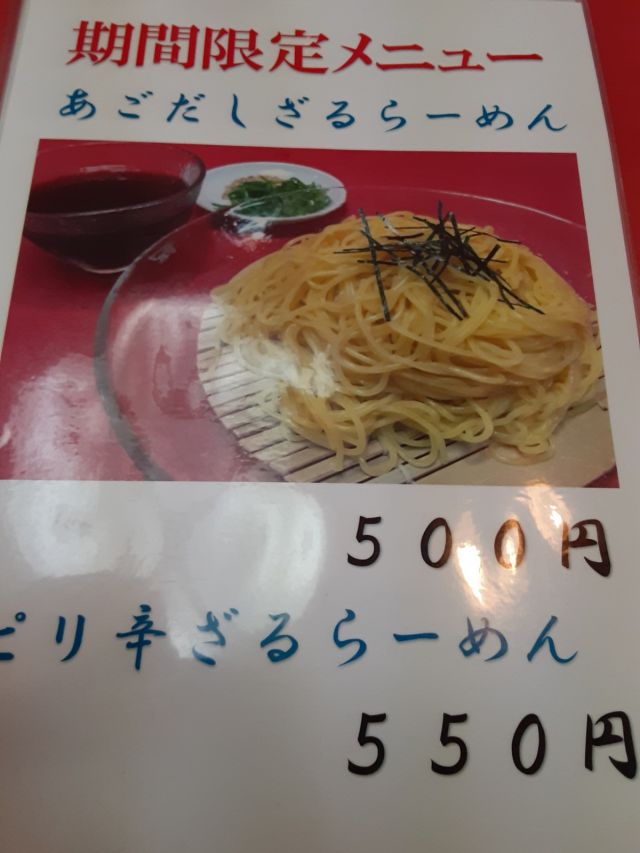 期間限定メニュー
あごだしざるらーめん
500円
ピリ辛ざるらーめん
550円